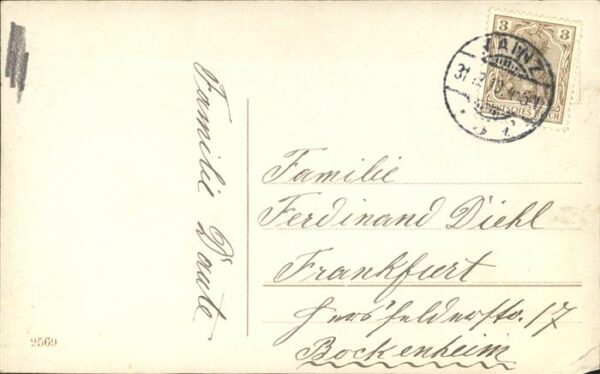 3 3
MAINZ
31.12.10.4-5N
DEUTSCHES REICH
Familie Daute
Familie
Ferdinand Diehl
Frankfurt
Hersfelderstr. 17
Bockenheim
2569